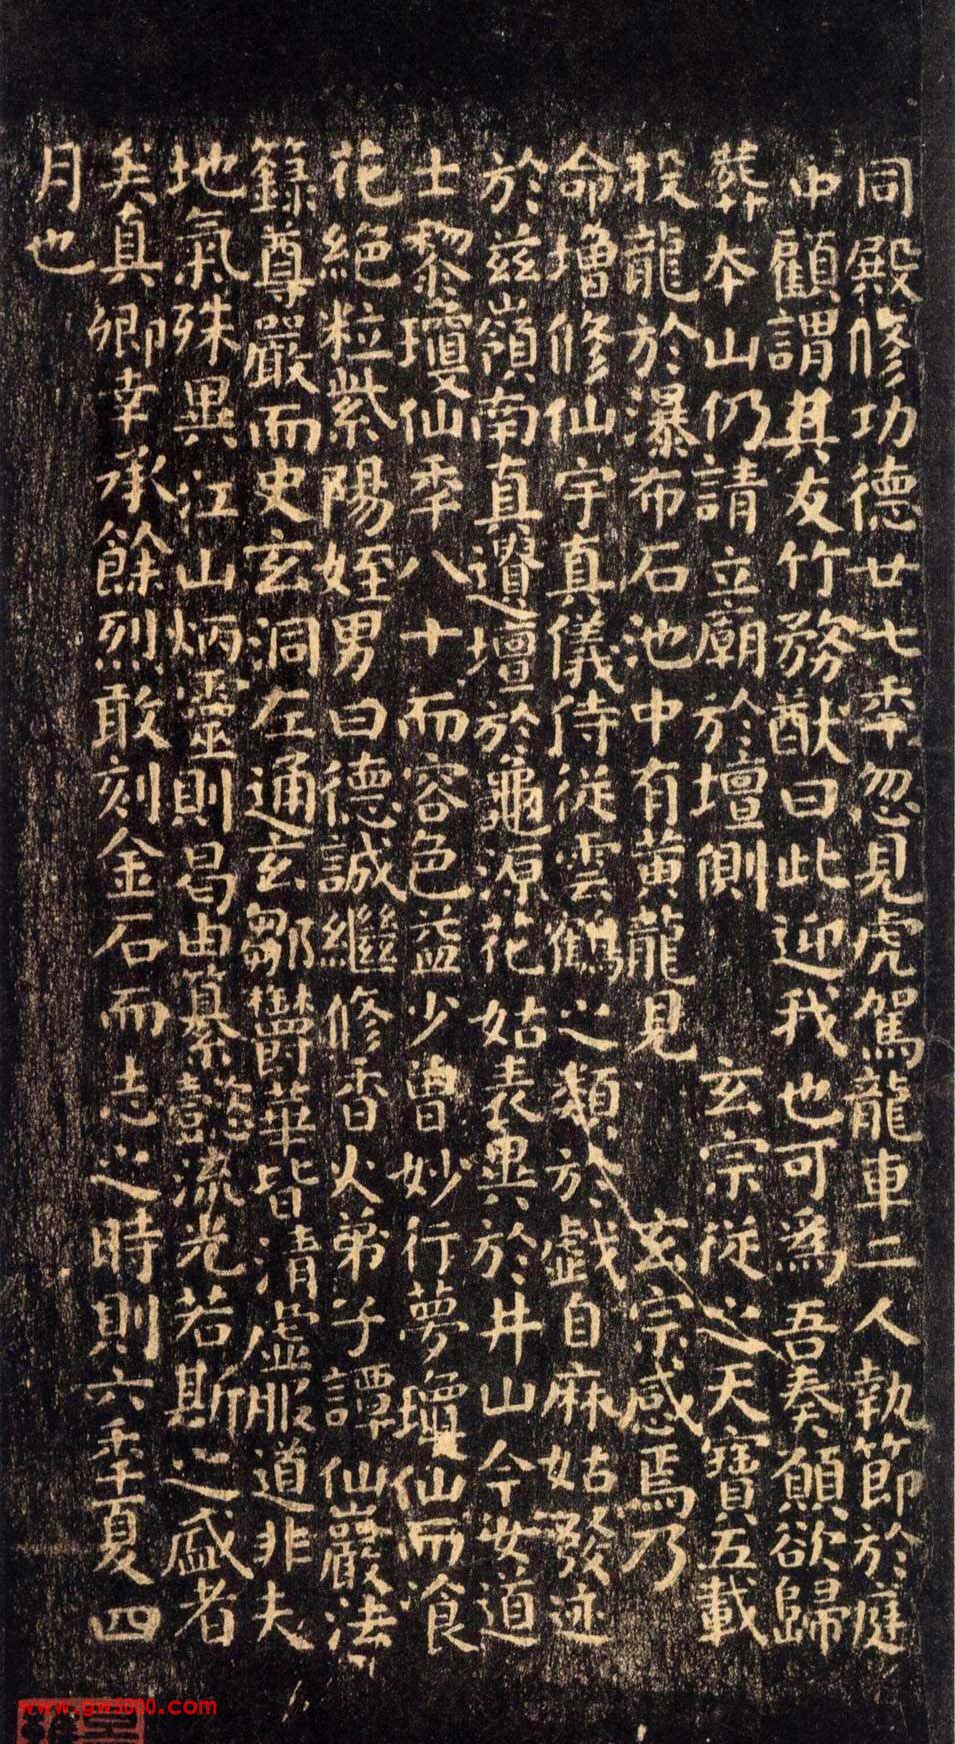 同殿修功德廿七年忽見虎駕龍車二人執節於庭
中顧謂其友竹務猷曰此迎我也可爲吾奏願欲歸
葬本山仍請立廟於壇側 玄宗從之天寶五載
投龍於瀑布石池中有黃龍見 玄宗感焉乃
命增修仙宇真儀侍從雲鶴之類於戲自麻姑發迹
於兹嶺南真遺壇於龜源花姑表異於井山今女道
士黎瓊仙年八十而容色益少曾妙行夢瓊仙而飡
花絶粒紫陽姪男曰德誠繼修香火弟子譚仙巖法
籙尊嚴而史玄洞左通玄鄒欝華皆清虛服道非夫
地氣殊異江山炳靈則曷由纂懿流光若斯之盛者
矣真卿幸承餘烈敢刻金石而志之時則六年夏四
月也
www.gw5000.com